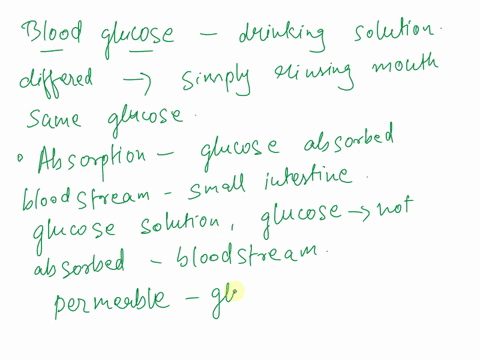 Blood glucose - drinking solution.
differed → simply rinsing mouth
same glucose.
• Absorption - glucose absorbed
bloodstream - small intestine.
glucose solution, glucose → not
absorbed - bloodstream.
permeable - gl